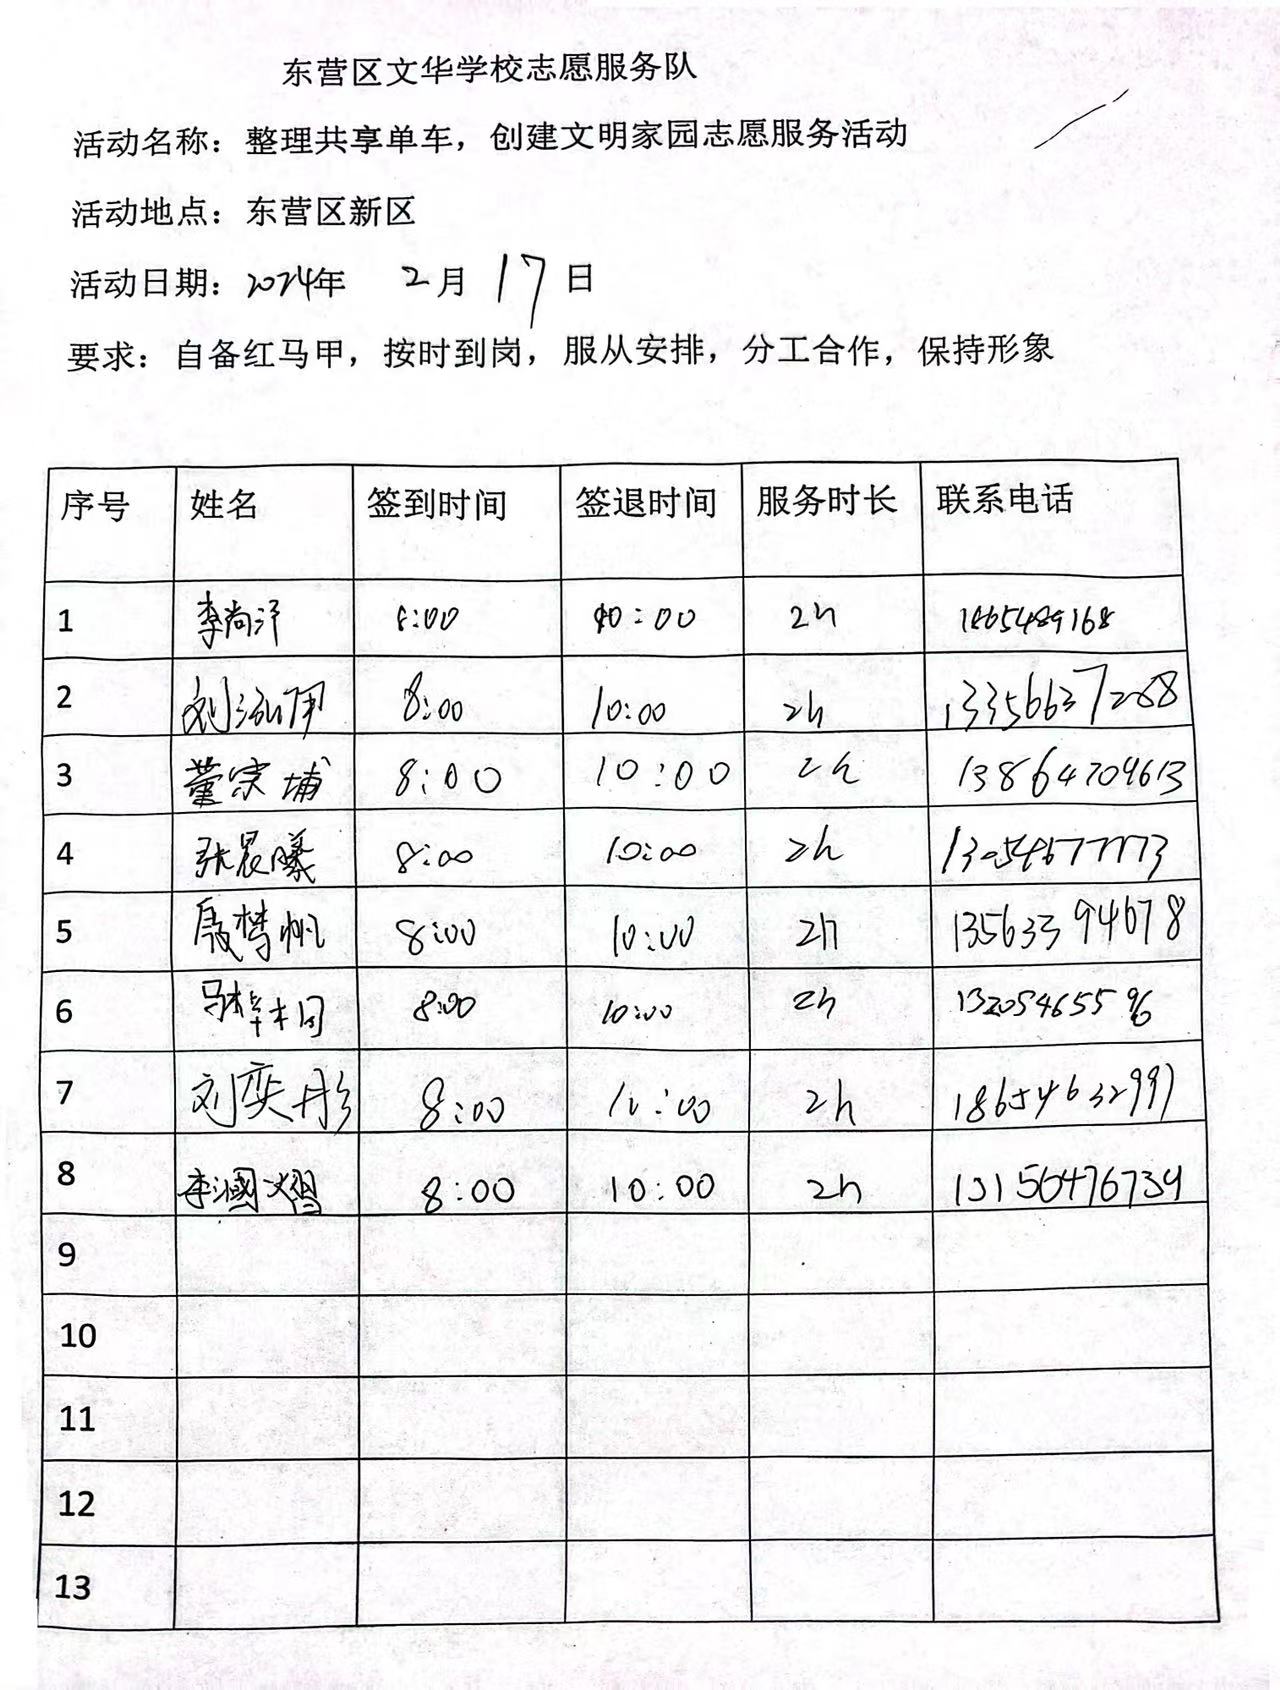 东营区文华学校志愿服务队
活动名称：整理共享单车，创建文明家园志愿服务活动
活动地点：东营区新区
活动日期：2024年 2月 17日
要求：自备红马甲，按时到岗，服从安排，分工合作，保持形象
序号 姓名 签到时间 签退时间 服务时长 联系电话
1 李尚泽 8:00 10:00 2h
2 8:00 10:00 2h 13356637288
3 董宗埔 8:00 10:00 2h 13864704613
4 张晨曦 8:00 10:00 2h 13054677773
5 殷梦帆 8:00 10:00 2h 13563394678
6 8:00 10:00 2h 13205465596
7 刘奕彤 8:00 10:00 2h 18654632991
8 8:00 10:00 2h 13156476739
9
10
11
12
13